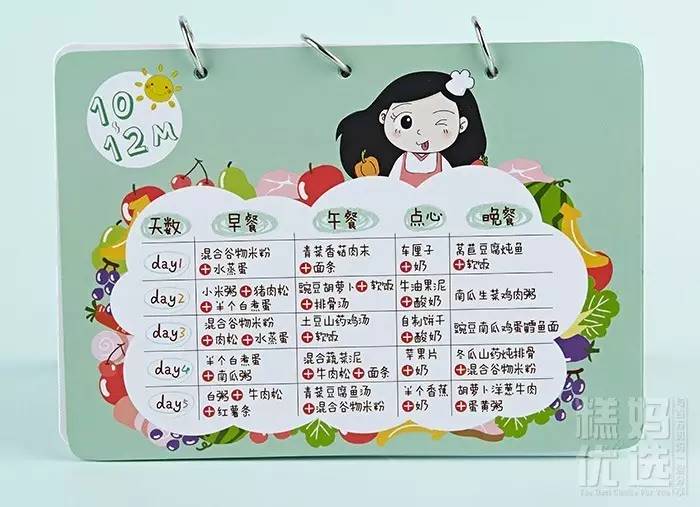 10~12M
天数 早餐 午餐 点心 晚餐
day1 混合谷物米粉 青菜香菇肉末 车厘子 莴苣豆腐炖鱼
+水蒸蛋 +面条 +奶 +软饭
day2 小米粥+猪肉松 豌豆胡萝卜+软饭 牛油果泥 南瓜生菜鸡肉粥
+半个白煮蛋 +排骨汤 +酸奶
day3 混合谷物米粉 土豆山药鸡汤 自制饼干 豌豆南瓜鸡蛋鳕鱼面
+肉松+水蒸蛋 +软饭 +酸奶
day4 半个白煮蛋 混合蔬菜泥 苹果片 冬瓜山药炖排骨
+南瓜粥 +牛肉松+面条 +奶 +混合谷物米粉
day5 白粥+牛肉松 青菜豆腐鱼汤 半个香蕉 胡萝卜洋葱牛肉
+红薯条 +混合谷物米粉 +奶 +蛋黄粥
糕妈
优选
The Best Choice For You